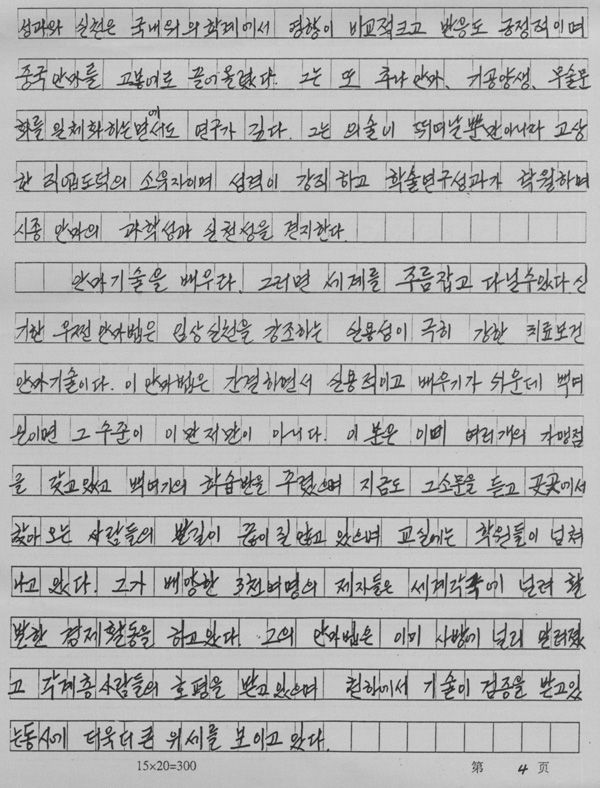 성과와 실천은 국내외의 학계에서 영향이 비교적크고 반응도 긍정적이며
중국안마를 고봉에로 끌어올렸다. 그는 또 추나안마, 기공양생, 무술문
화를 일체화하는면에서도 연구가 깊다. 그는 의술이 뛰여날뿐만아니라 고상
한 직업도덕의 소유자이며 성격이 강직하고 학술연구성과가 탁월하며
시종 안마의 과학성과 실천성을 견지한다.
안마기술을 배우라, 그러면 세계를 주름잡고 다닐수있다. 신
기한 안마법은 임상실천을 강조하는 실용성이 극히 강한 치료보건
안마기술이다. 이 안마법은 간결하면서 실용적이고 배우기가 쉬운데 백여
원이면 그 수준이 이만저만이 아니다. 이 분은 이미 여러개의 가맹점
을 갖고있고 백여기의 학습반을 꾸렸으며 지금도 그소문을 듣고 곳곳에서
찾아 오는 사람들의 발길이 끊이질 않고 있으며 교실에는 학원들이 넘쳐
나고 있다. 그가 배양한 3천여명의 제자들은 세계각국에 널려 활
발한 경제활동을 하고있다. 그의 안마법은 이미 사방에 널리 알려졌
고 각계층사람들의 호평을 받고있으며 천하에서 기술이 검증을 받고있
는동시에 더욱더 큰 위세를 보이고 있다.
15×20=300 第 4 页